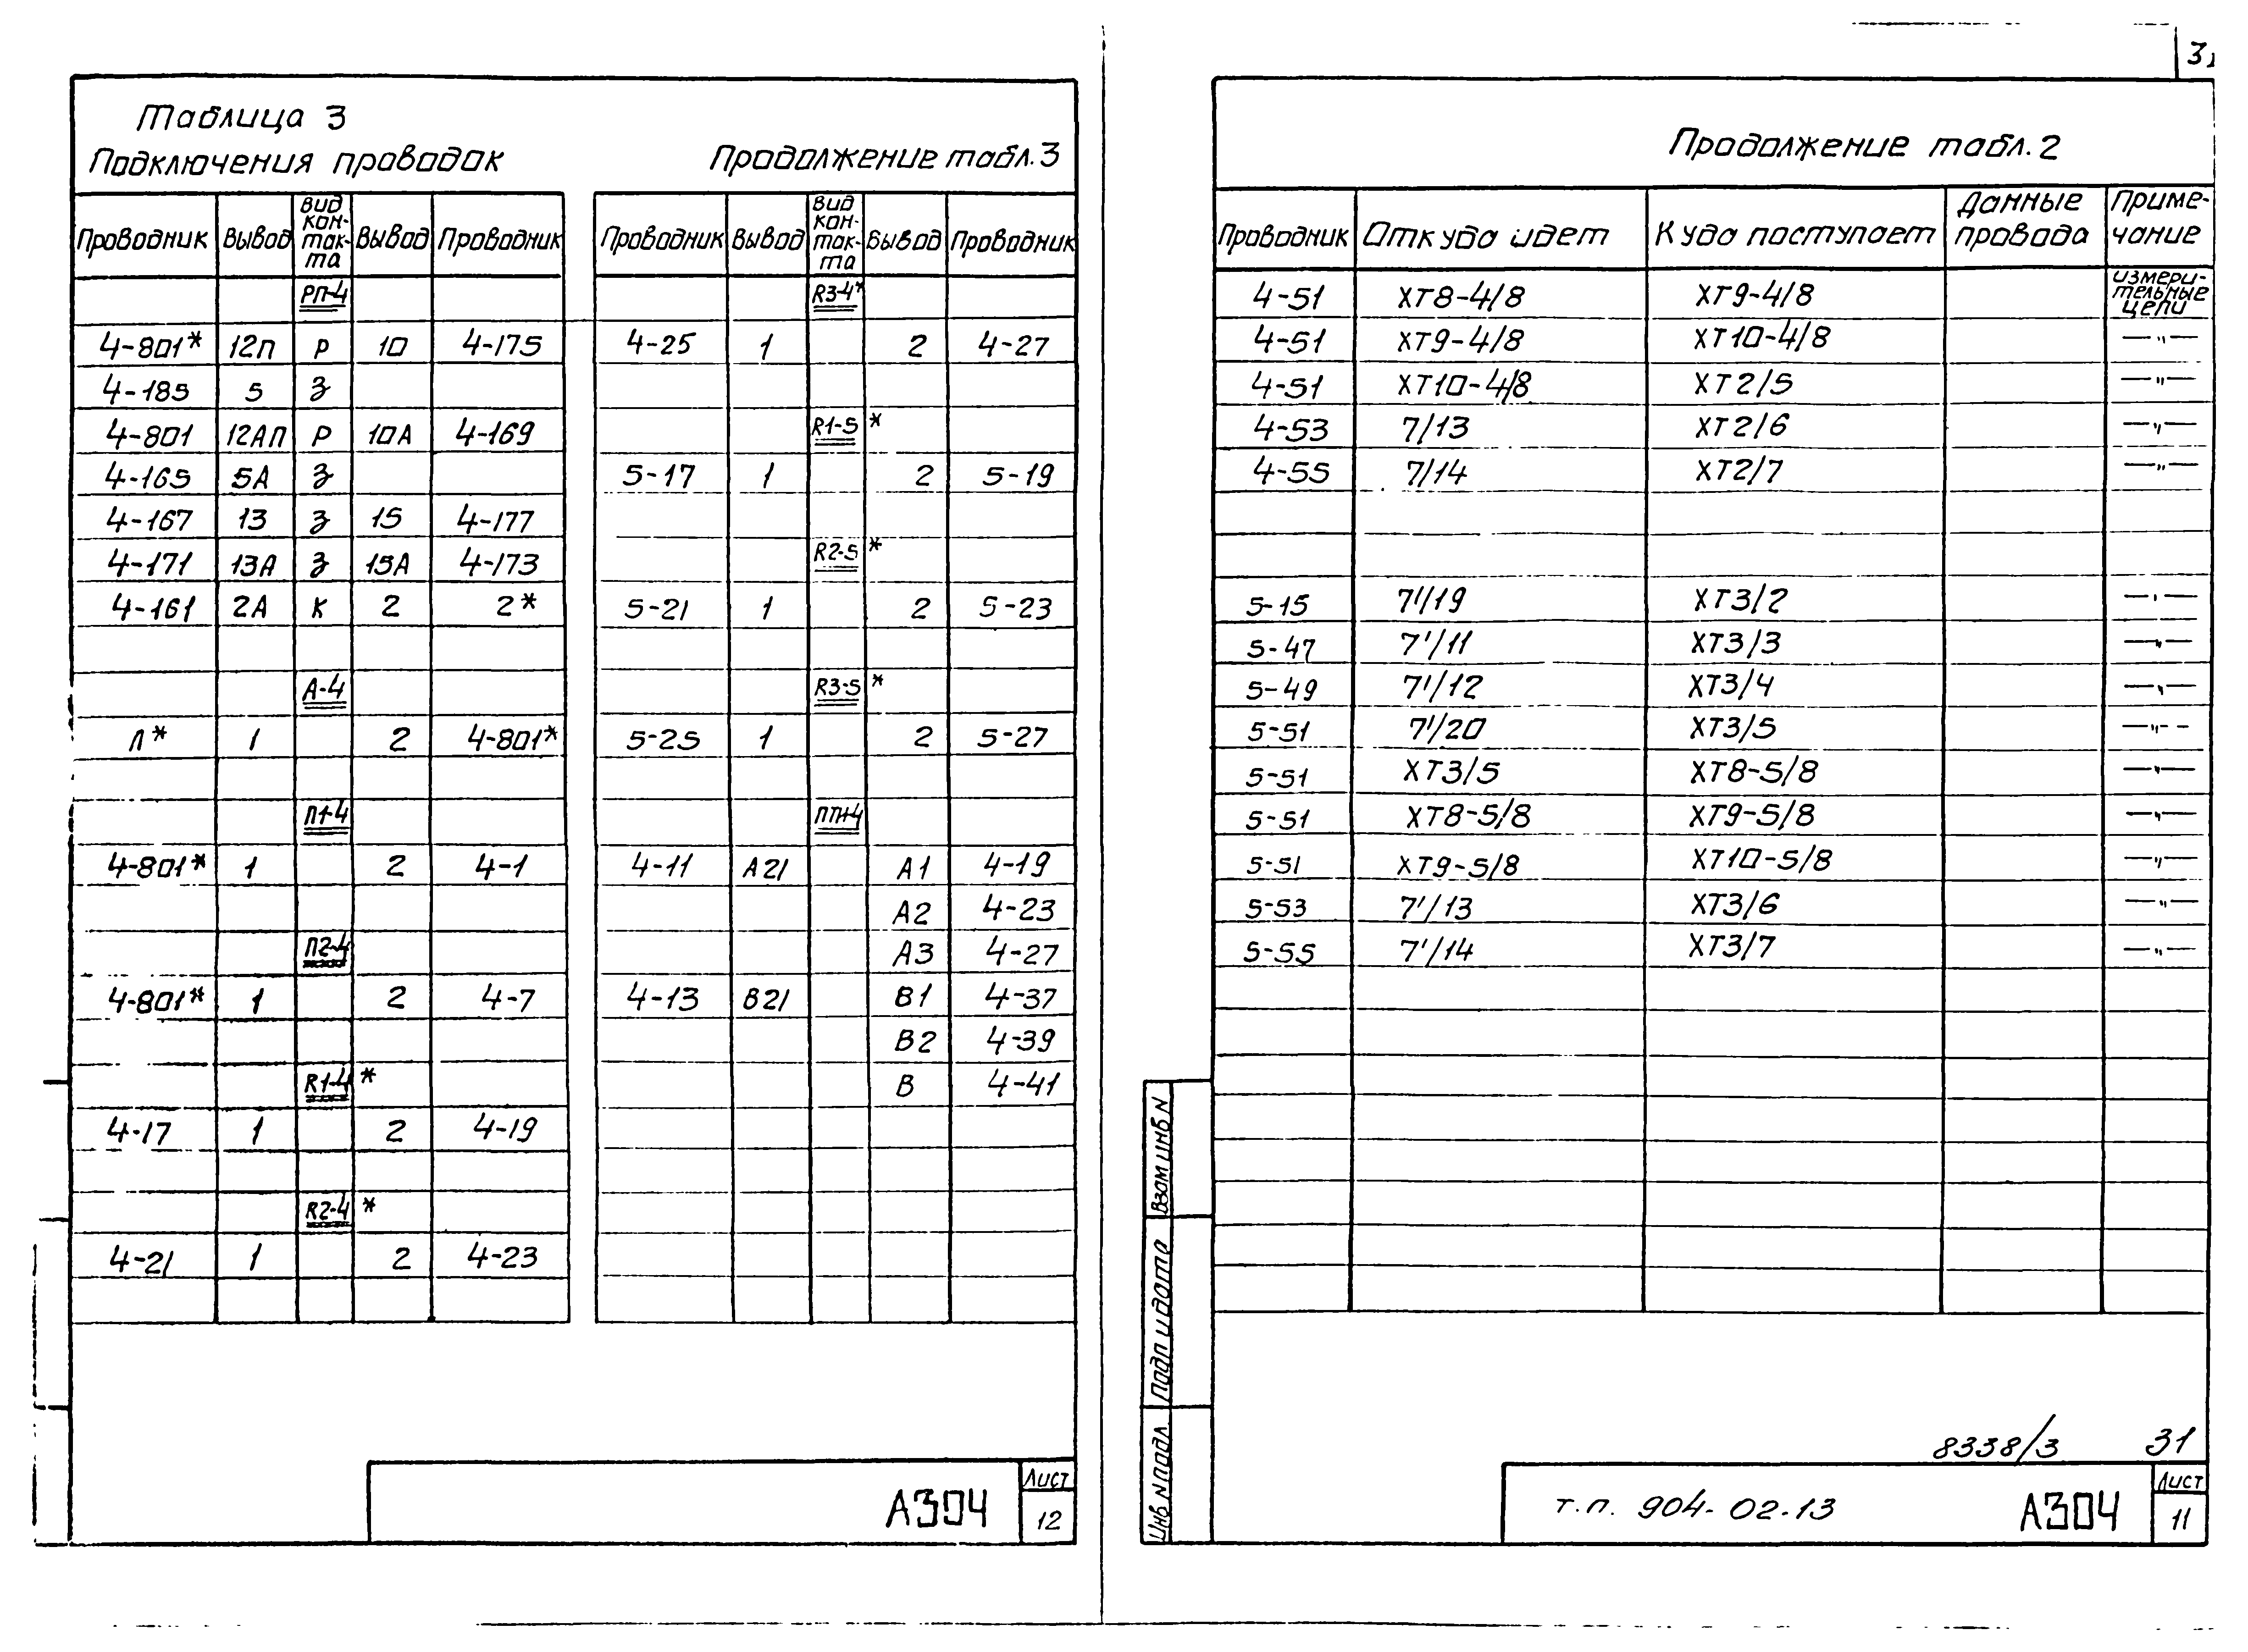 Таблица 3
Подключения проводок
Проводник Вывод Вид кон-так-та Вывод Проводник
РП-4
4-801* 12п Р 10 4-175
4-185 5 З
4-801 12АП Р 10А 4-169
4-165 5А З
4-167 13 З 15 4-177
4-171 13А З 15А 4-173
4-161 2А К 2 2*
А-4
Л* 1 2 4-801*
П1-4
4-801* 1 2 4-1
П2-4
4-801* 1 2 4-7
R1-4 *
4-17 1 2 4-19
R2-4 *
4-21 1 2 4-23
Продолжение табл.3
Проводник Вывод Вид кон-так-та Вывод Проводник
R3-4*
4-25 1 2 4-27
R1-5 *
5-17 1 2 5-19
R2-5 *
5-21 1 2 5-23
R3-5 *
5-25 1 2 5-27
ПТН4
4-11 А21 А1 4-19
А2 4-23
А3 4-27
4-13 В21 В1 4-37
В2 4-39
В 4-41
А304
Лист
12
Продолжение табл. 2
Проводник Откуда идет Куда поступает Данные провода Приме-чание
4-51 ХТ8-4/8 ХТ9-4/8 измери-тельные цепи
4-51 ХТ9-4/8 ХТ10-4/8 —"—
4-51 ХТ10-4/8 ХТ2/5 —"—
4-53 7/13 ХТ2/6 —"—
4-55 7/14 ХТ2/7 —"—
5-15 7'/19 ХТ3/2 —"—
5-47 7'/11 ХТ3/3 —"—
5-49 7'/12 ХТ3/4 —"—
5-51 7'/20 ХТ3/5 —"—
5-51 ХТ3/5 ХТ8-5/8 —"—
5-51 ХТ8-5/8 ХТ9-5/8 —"—
5-51 ХТ9-5/8 ХТ10-5/8 —"—
5-53 7'/13 ХТ3/6 —"—
5-55 7'/14 ХТ3/7 —"—
Взам инв N
Подп и дата
Инв N подл
8338/3 31
т.п. 904-02.13 А304
Лист
11